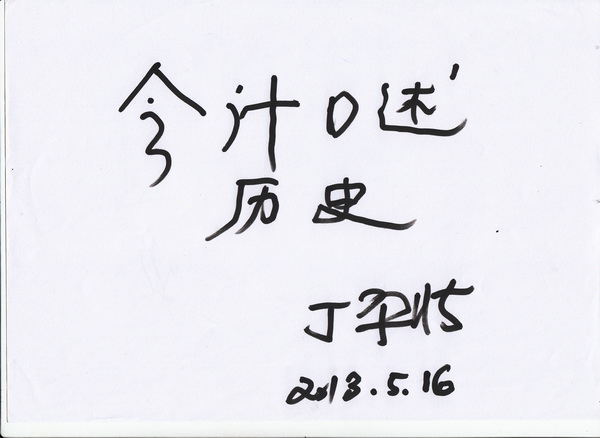 会计口述
历史
丁平准
2013.5.16